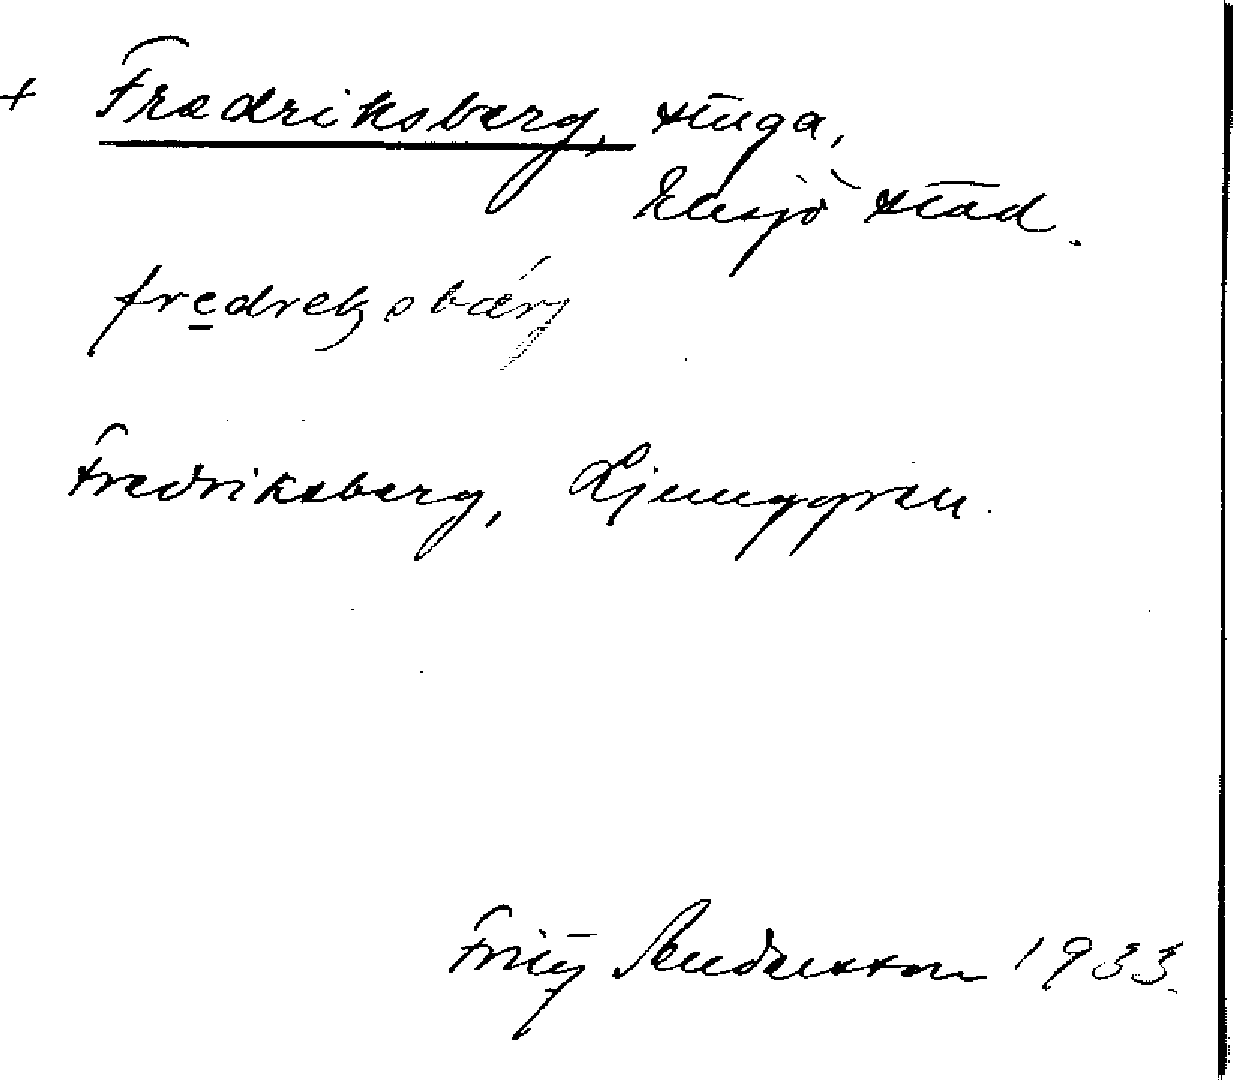 + Fredriksberg, stuga,
Eksjö stad.
fredreksbærj
Fredriksberg, Ljunggren.
Fritz Andersson 1933.